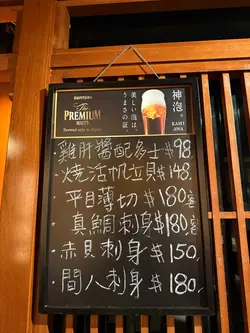 SUNTORY
The
PREMIUM
MALT'S
Brewed only in Japan
美しい泡は、
うまさの証。
神泡。
KAMI
AWA
雞肝醬配多士$98
燒活帆立貝$148
平目薄切$180
真鯛刺身$180
赤貝刺身$150
間八刺身$180